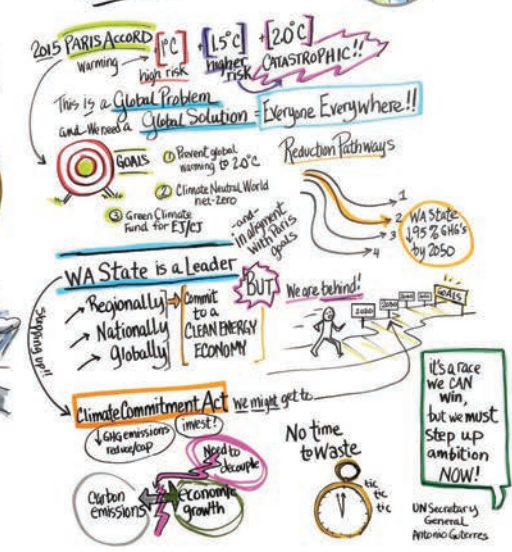 2015 PARIS ACCORD
[1°C] [1.5°C] [2.0°C]
warming
high risk
higher risk
CATASTROPHIC!!
This is a Global Problem
and we need a Global Solution = Everyone Everywhere!!
GOALS
① Prevent global
warming to 2.0°C
② Climate Neutral World
net-zero
③ Green Climate
Fund for EJ/CJ
-and-
in alignment
with Paris
goals
Reduction Pathways
1
2
3
4
WA State
↓95% GHG's
by 2050
WA State is a Leader
Regionally
Nationally
Globally
Commit
to a
CLEAN ENERGY
ECONOMY
BUT
We are behind!
2020
2030
GOALS
Stepping up!!
Climate Commitment Act
we might get to
↓GHG emissions
reduce/cap
invest!
Need to
decouple
Carbon
emissions
economic
growth
No time
to Waste
tic
tic
tic
it's a race
we CAN
win,
but we must
step up
ambition
NOW!
UN Secretary
General
Antonio Guterres